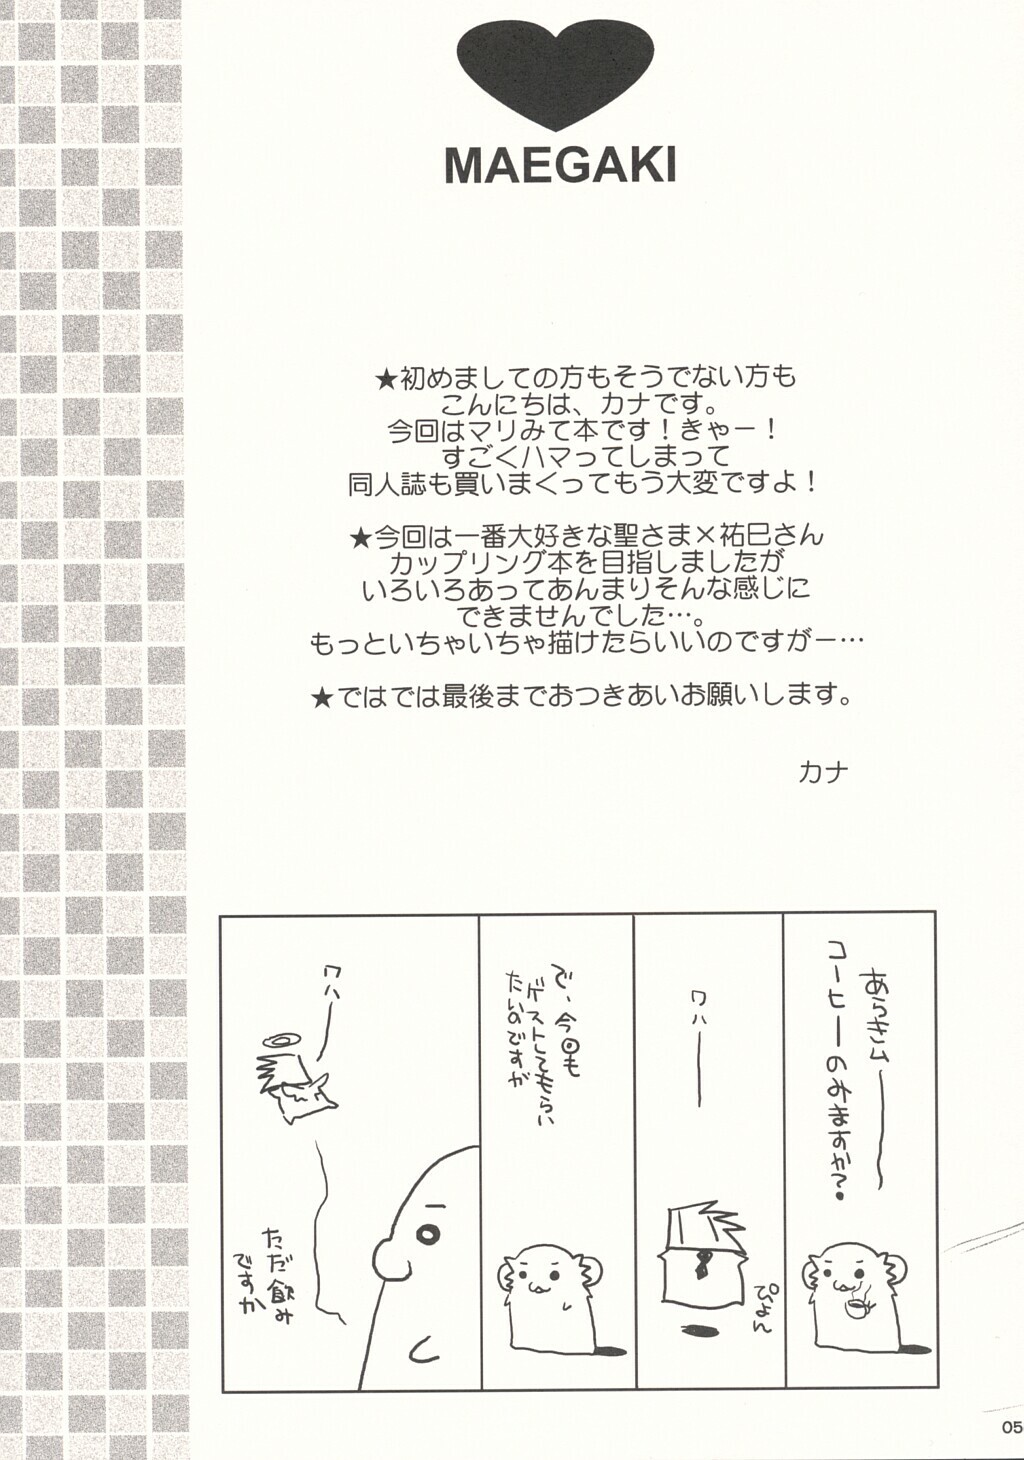 MAEGAKI
★初めましての方もそうでない方も
こんにちは、カナです。
今回はマリみて本です！きゃー！
すごくハマってしまって
同人誌も買いまくってもう大変ですよ！
★今回は一番大好きな聖さま×祐巳さん
カップリング本を目指しましたが
いろいろあってあんまりそんな感じに
できませんでした…。
もっといちゃいちゃ描けたらいいのですがー…
★ではでは最後までおつきあいお願いします。
カナ
あらきムー
コーヒーのみますか？
ワハー
ぴょん
で、今回も
ゲストしてもらい
たいのですが
ワハー
ただ飲み
ですか
05